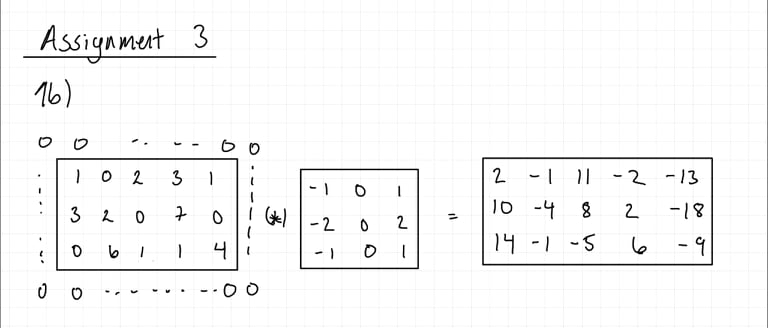 Assignment 3
1b)
0 0 ·· - - 0 0
1 0 2 3 1
3 2 0 7 0
0 6 1 1 4
0 0 ·· - · - · - ·· 0 0
(*)
-1 0 1
-2 0 2
-1 0 1
=
2 -1 11 -2 -13
10 -4 8 2 -18
14 -1 -5 6 -9